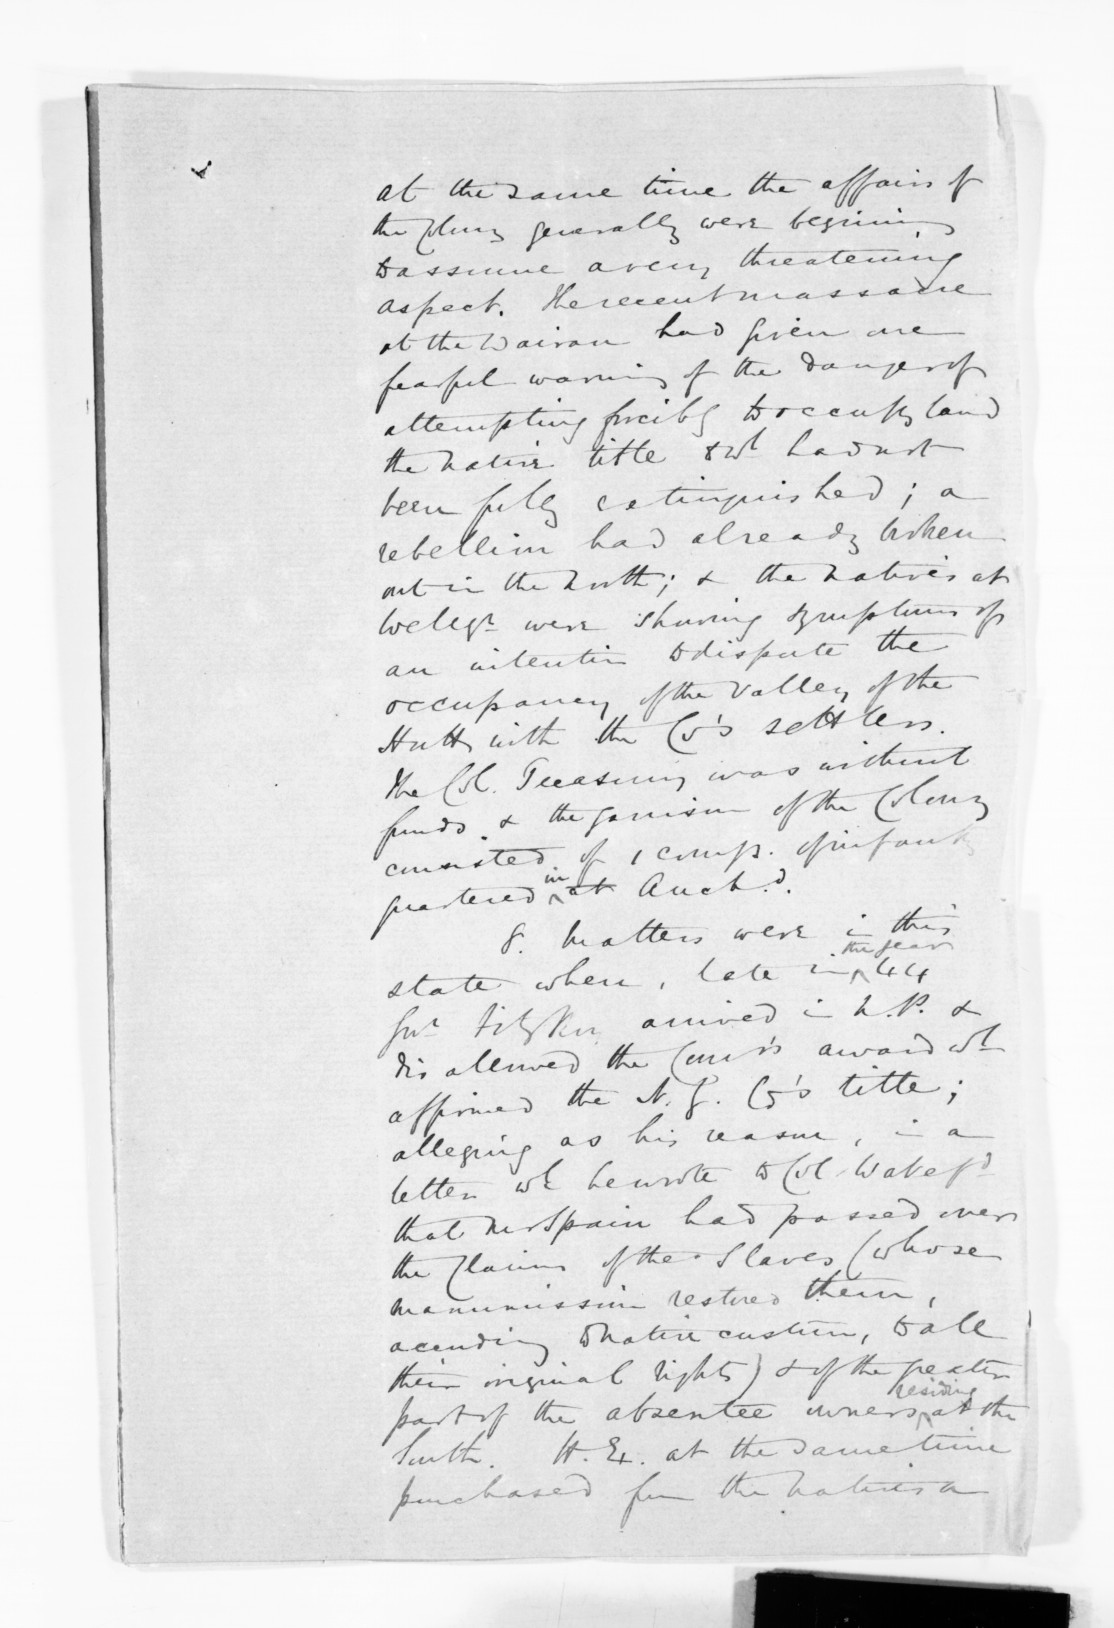 at the same time the affairs of
the Colony generally were begining
to assume a very threatening
aspect. The recent massacre
at the Wairau had given one
fearful warning of the danger of
attempting forcibly to occupy land
the native title to wh had not
been fully extinguished; a
rebellion had already broken
out in the North; & the natives at
Wellgn were showing symptoms of
an intention to dispute the
occupancy of the valley of the
Hutt with the Co's settlers.
The Col. Treasury was without
funds & the garrison of the Colony
consisted of 1 comp. of infantry
quartered in at Auckd.
8. Matters were in this
state when, late in the year 44
Govr FitzRoy arrived in N.P. &
disallowed the Comr's award wh
affirmed the N.Z. Co's title;
alleging as his reason, in a
letter wh he wrote to Col Wakefd
that Mr Spain had passed over
the Claims of the Slaves (whose
manumission restored them,
according to native custom, to all
their original rights) & of the greater
part of the absentee owners residing at the
South. H. Ex. at the same time
purchased from the natives a